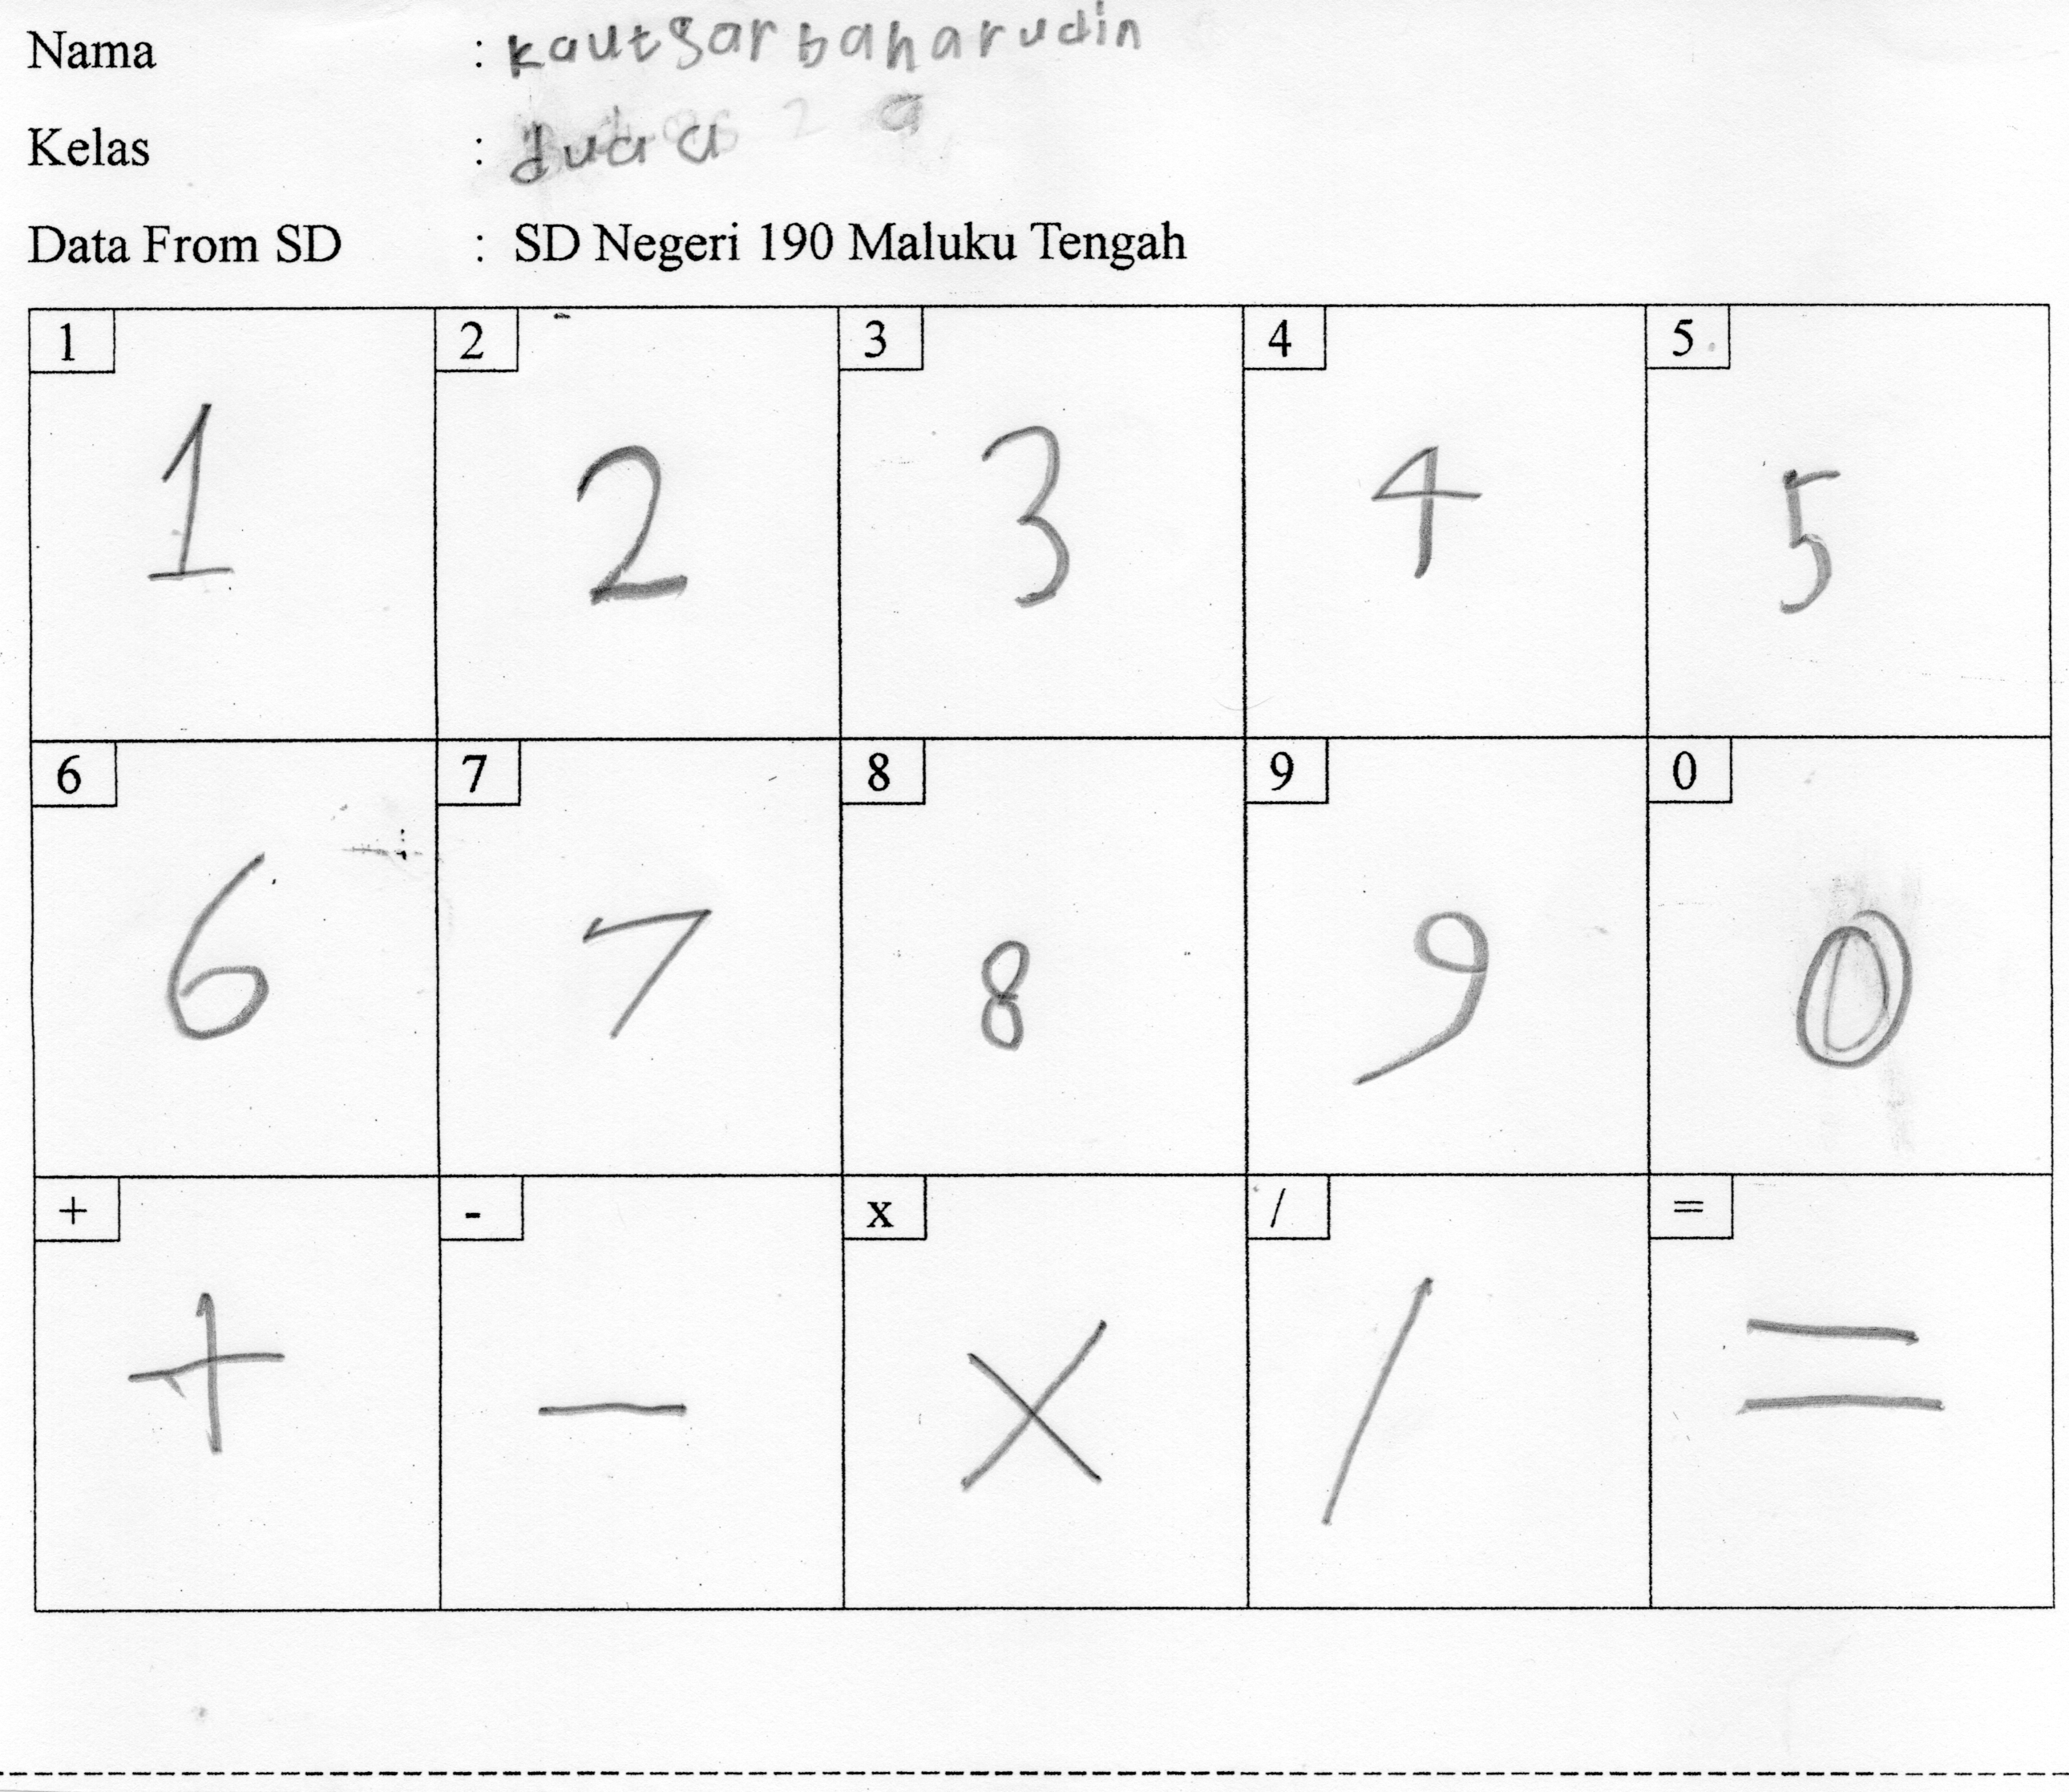 Nama : kautsar baharudin
Kelas : dua a
Data From SD : SD Negeri 190 Maluku Tengah
1 2 3 4 5
1 2 3 4 5
6 7 8 9 0
6 7 8 9 0
+ - x / =
+ - x / =